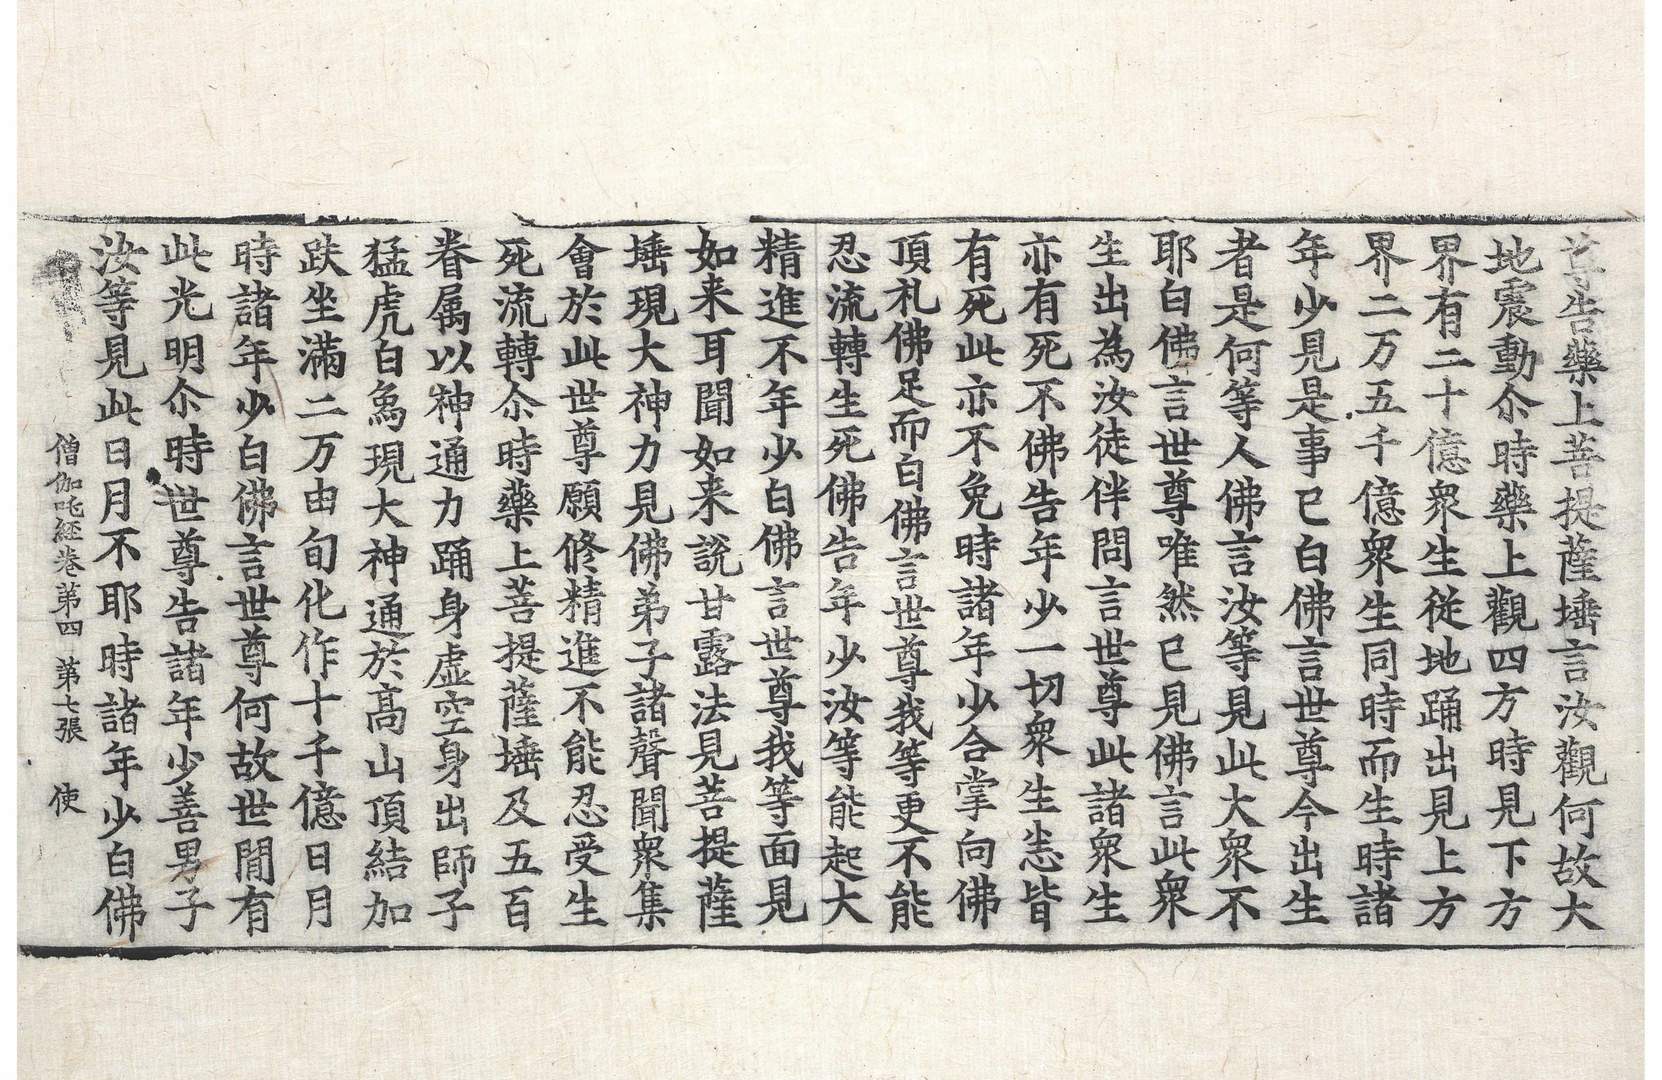 尊告藥上菩提薩埵言汝觀何故大
地震動尒時藥上觀四方時見下方
界有二十億衆生從地踊出見上方
界二万五千億衆生同時而生時諸
年少見是事已白佛言世尊今出生
者是何等人佛言汝等見此大衆不
耶白佛言世尊唯然已見佛言此衆
生出為汝徒伴問言世尊此諸衆生
亦有死不佛告年少一切衆生悉皆
有死此亦不免時諸年少合掌向佛
頂札佛足而白佛言世尊我等更不能
忍流轉生死佛告年少汝等能起大
精進不年少白佛言世尊我等面見
如来耳聞如来說甘露法見菩提薩
埵現大神力見佛弟子諸聲聞衆集
會於此世尊願修精進不能忍受生
死流轉尒時藥上菩提薩埵及五百
眷属以神通力踊身虚空身出師子
猛虎白象現大神通於高山頂結加
趺坐滿二万由旬化作十千億日月
時諸年少白佛言世尊何故世間有
此光明尒時世尊告諸年少善男子
汝等見此日月不耶時諸年少白佛
僧伽吒経巻第四 第七張 使